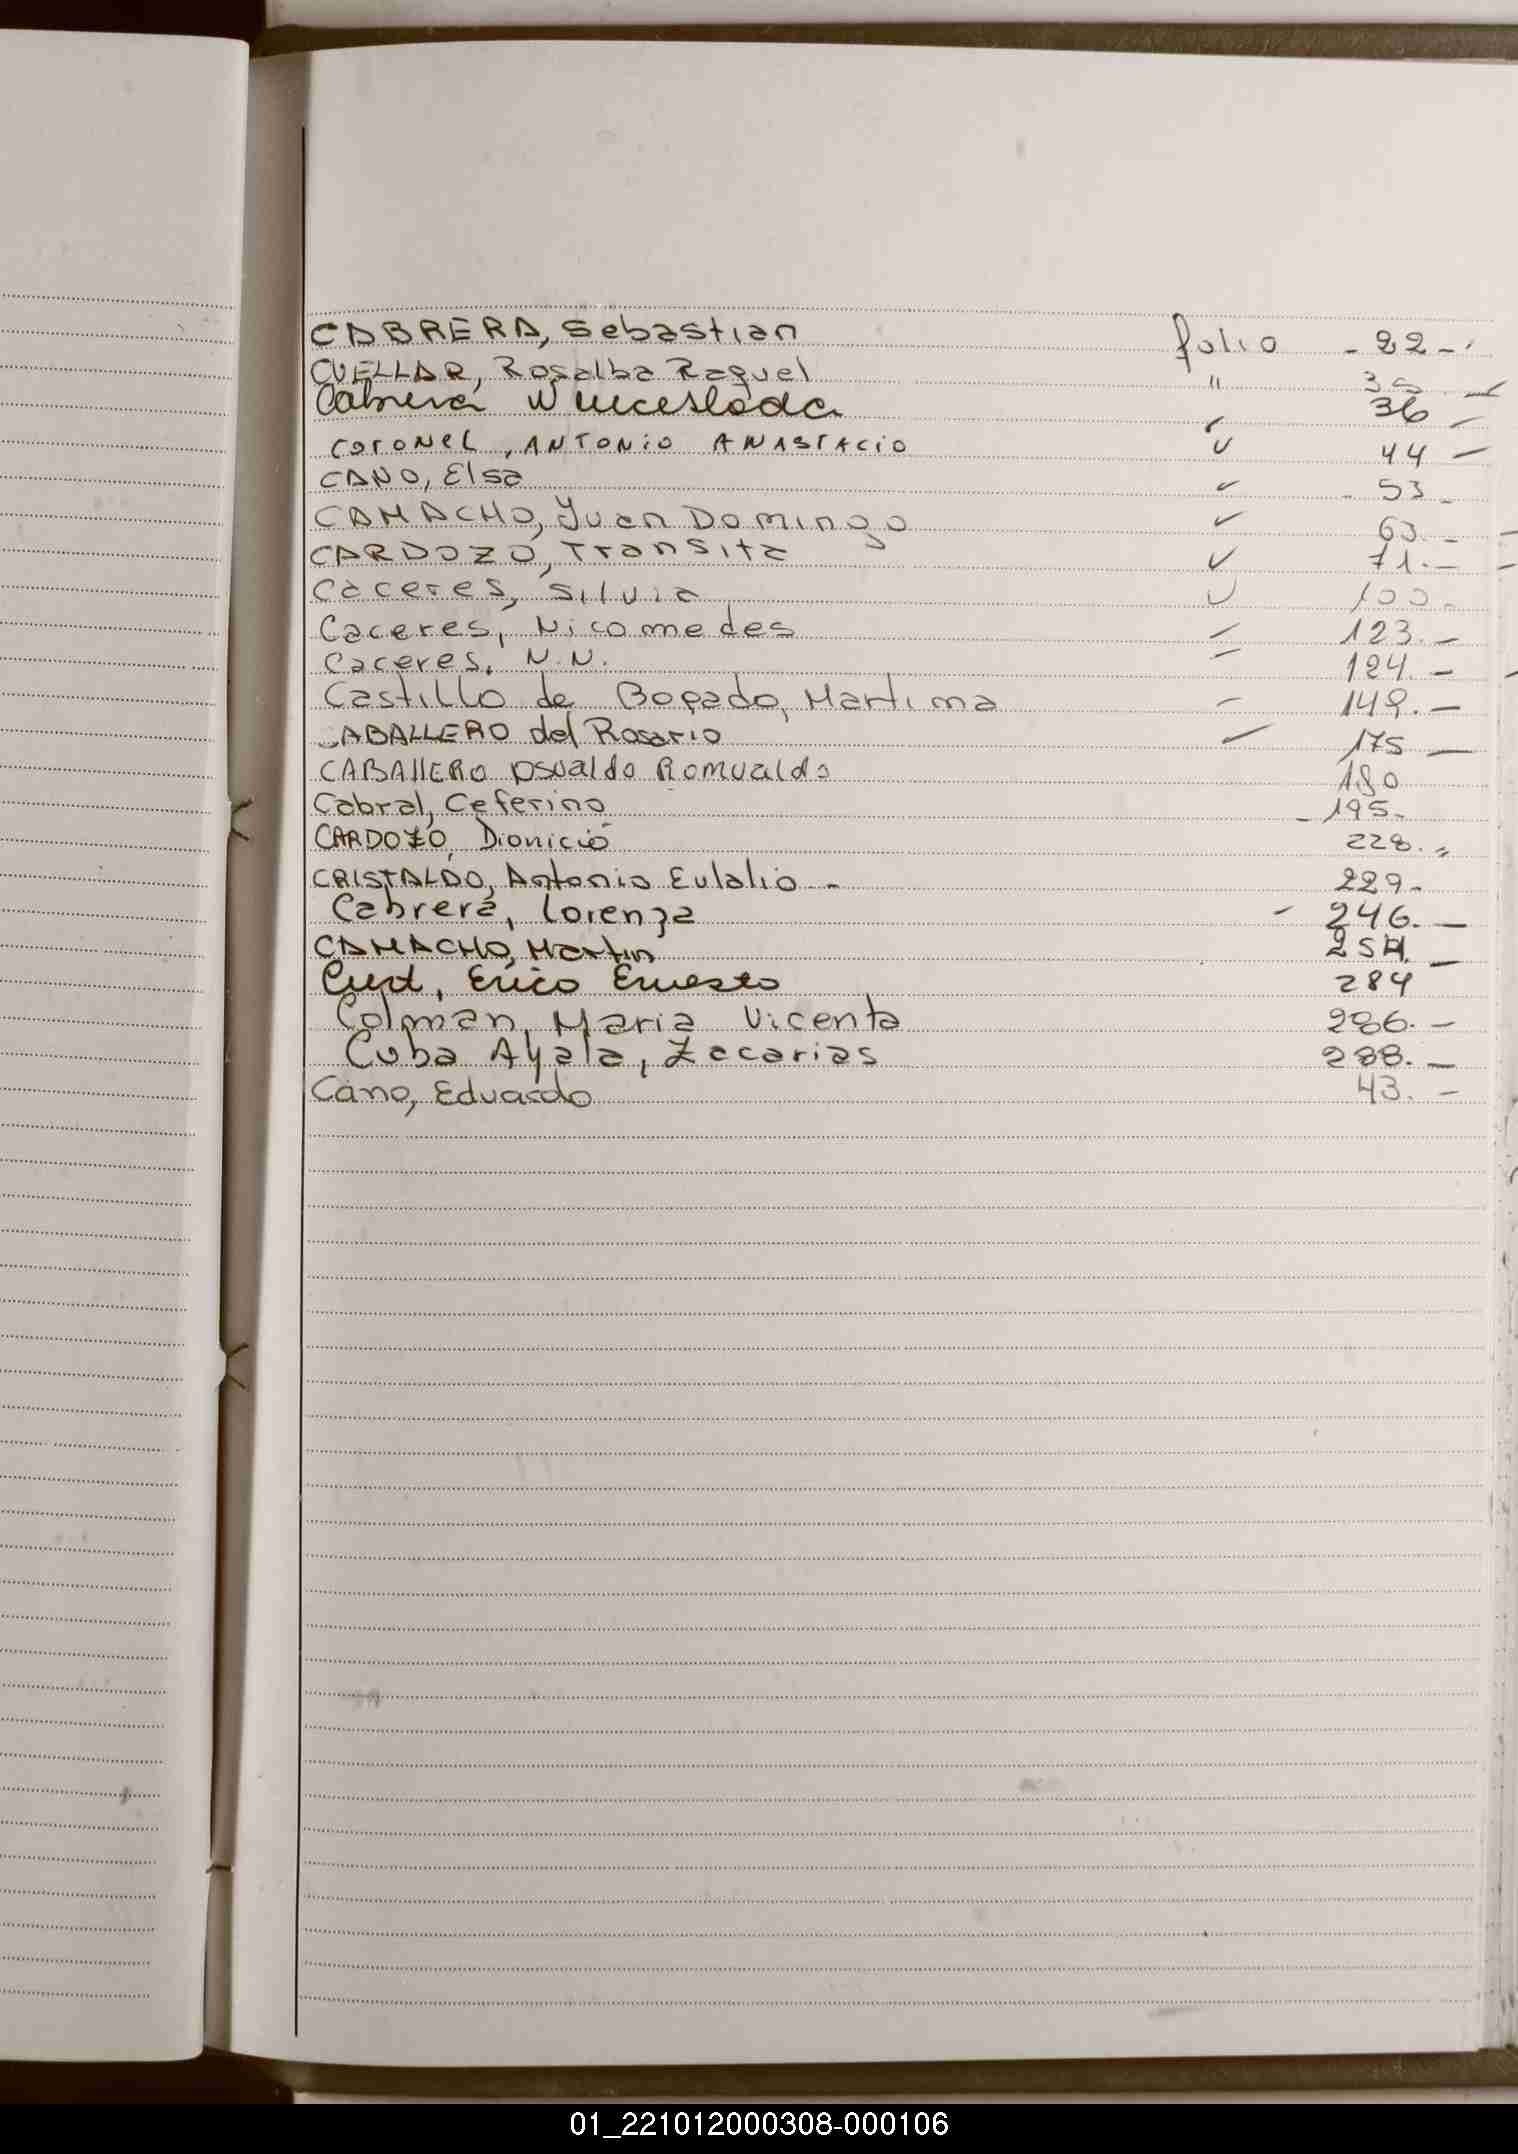 CABRERA, Sebastian folio - 22 -
CUELLAR, Rosalba Raquel " 35
Cabrera Wenceslada 36
CORONEL, ANTONIO ANASTACIO 44 -
CANO, Elsa - 53 -
CAMACHO, Juan Domingo 63. -
CARDOZO, Transita 71. -
Caceres, Silvia 100 -
Caceres, Nicomedes 123. -
Caceres, N.N. 124. -
Castillo de Bogado, Martima 149. -
CABALLERO del Rosario 175 -
CABAllERO Osvaldo Romualdo 180
Cabral, Ceferino - 195 -
CARDOZO, Dionicio 228. -
CRISTALDO, Antonio Eulalio - 229 -
Cabrera, Lorenza - 246. -
CAMACHO, Martin 254. -
Erico Ernesto 284
Colman, Maria Vicenta 286. -
Cuba Ayala, Zacarias 288. -
Cano, Eduardo 43. -
01_221012000308-000106